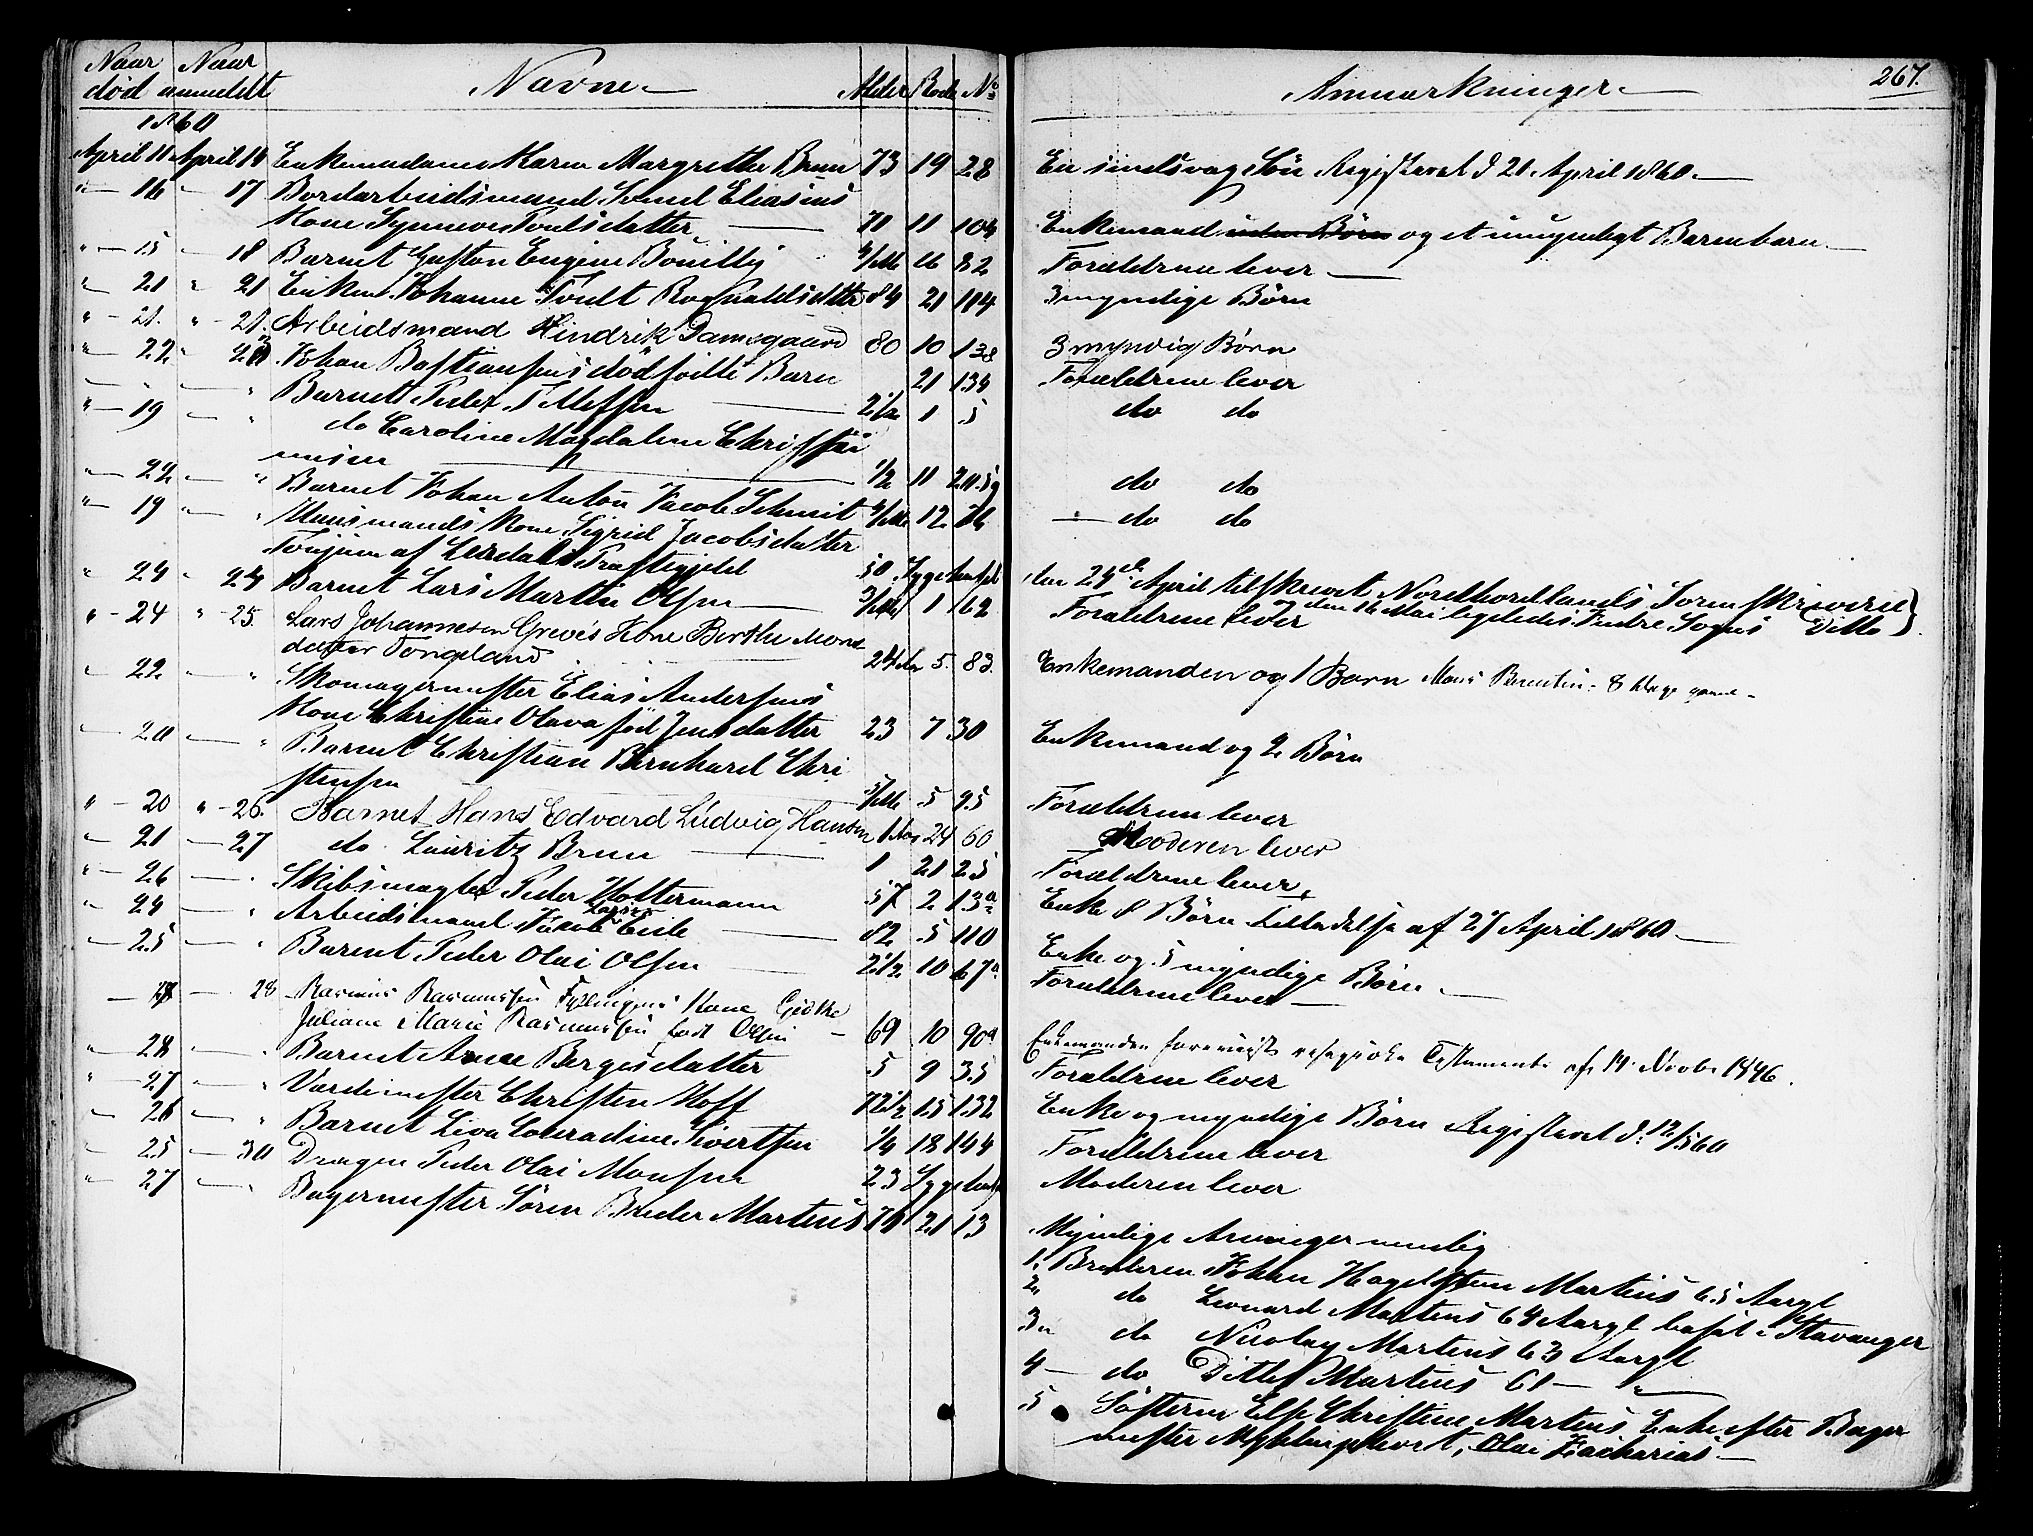 Naar Naar Navne Alder Rode No
død anmeldt
1860
April 11 April 14 Enkemadame Karen Margrethe Brun 73 19 28
" — 16 — 17 Bordarbeidsmand Eliasens
Kone Synneve Poulsdatter — 70 11 104
" — 15 — 18 Barnet Gaston Eugine Bouilly 16 82
" 21 " 21 Enken Johanne Rognaldsdtr 84 21 114
" — 21. " — 21. Arbeidsmand Hindrik Damsgaard 80 10 138
" — 22 " Johan Bastiansens dødfødte Barn 21 134
— — " Barnet Peder T Messen — 2 1/2 1 5
" — 19 — " do Caroline Magdalene Christia
nusen — 1/2 11
— 22 — " Barnet Johan Anton Jacob Schmit 12 76
" — 19 — " Huusmands Kone Sigrid Jacobsdatter
Tønjum af Leirdals Præstegjeld 50 Sygehuset
" 24 " 24 Barnet Lars Martin Olsen — 1 62
" — 24 " — 25. Lars Johannesen Greves Kone Berthe Mons
datter Tongeland 24 Aar 5. 83.
" — 22 — " Skomagermester Elias Andersens
Kone Christine Olava fød Jensdatter 23 7 30
— 20 — " Barnet Christian Bernhard Chri
stensen — 5 95
" — 20 " — 26. Barnet Hans Edvard Ludvig Hansen 1 Aar 24 60
— 21 — 27 do Lauritz Brun — 1 21 25
" — 26 — " Skibsmægler Peder Holtermann 57 2 13a
— 24 — " Arbeidsmand Jacob Larsen Eide — 82 5 110
" — 25 — " Barnet Peder Olai Olsen — 2 1/2 10 67a
— — 28 Rasmus Rasmussen Fyllingens Kone Giørthe
Juliane Marie Rasmussen født Olsen — 69 10 90a
" — 28 — " Barnet Anne Bergesdatter 5 9 35
" — 27 — " Christen Hoff 72 1/2 15 132
— 28 — " Barnet Liva Conradine Sivertsen 1/4 18 144
— 25 — 30 Drengen Peder Olai Monsen 23 Sygehuset
" — 27 — " Bagermester Søren Breder Martens 76 21 13
Anmærkninger — 267.
En sindsvag Søn Registreret d 21 April 1860 —
Enkemand uden Børn og et umyndigt Barnebarn —
Forældrene lever —
3 myndige Børn
3 myndig Børn
Forældrene lever
do do
do do
— do do
den 24de April tilskrevet Nordhordlands Sorenskriveri
Forældrene lever og den 16 Mai ligeledes Indre Sogns Ditto
Enkemanden og 1 Barn Mons Berentin 8 Dage gammel
Enkemand og 2 Børn
Forældrene lever
Moderen lever
Forældrene lever
Enke 8 Børn Tilladelse af 27 April 1860 —
Enke og 5 myndige Børn —
Forældrene lever —
Enkemanden foreviiste Testamente af 14 Novbr 1846.
Forældrene lever
Enke og myndige Børn Registreret d. 12/5 60
Forældrene lever
Moderen lever
Myndige Arvinger nemlig
1. Broderen Johan Hagelsteen Martens 65 Aargl
2. do Leonard Martens 64 Aargl bosat i Stavanger
3. do Nicolay Martens 63 Aargl
4 — do Ditlef Martens 61 — " —
5 Søsteren Else Christine Martens Enke efter Bager
mester Myhlenphort, Olai Zacharias —